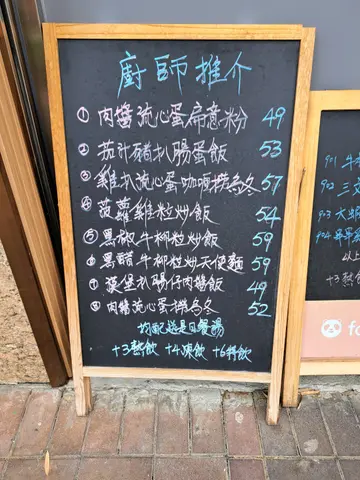 廚師推介
① 肉醬流心蛋扁意粉 49
② 茄汁豬扒腸蛋飯 53
③ 雞扒流心蛋咖喱撈烏冬 57
④ 菠蘿雞粒炒飯 54
⑤ 黑椒牛柳粒炒飯 59
⑥ 黑醋牛柳粒炒天使麵 59
⑦ 漢堡扒腸仔肉醬飯 49
⑧ 肉醬流心蛋撈烏冬 52
均配是日餐湯
+3熱飲 +4凍飲 +6特飲
901 牛
902 三文
903 大
904
以上
+3熱
fo